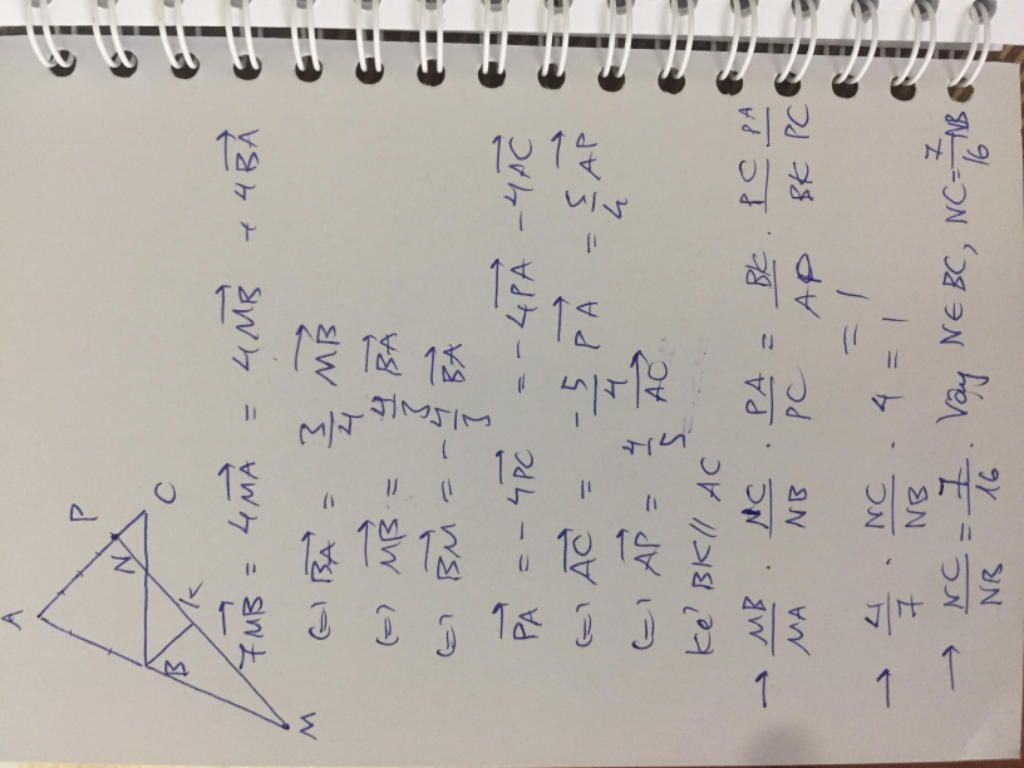 A
P
C
N
B
K
M
7\overrightarrow{MB} = 4\overrightarrow{MA} = 4\overrightarrow{MB} + 4\overrightarrow{BA}
(=) \overrightarrow{BA} = \frac{3}{4} \overrightarrow{MB}
(=) \overrightarrow{MB} = \frac{4}{3} \overrightarrow{BA}
(=) \overrightarrow{BM} = -\frac{4}{3} \overrightarrow{BA}
\overrightarrow{PA} = -4\overrightarrow{PC} = -4\overrightarrow{PA} - 4\overrightarrow{AC}
(=) \overrightarrow{AC} = -\frac{5}{4} \overrightarrow{PA} = \frac{5}{4} \overrightarrow{AP}
(=) \overrightarrow{AP} = \frac{4}{5} \overrightarrow{AC}
Kẻ BK // AC
→ \frac{MB}{MA} . \frac{NC}{NB} . \frac{PA}{PC} = \frac{BK}{AP} . \frac{PC}{BK} \frac{PA}{PC}
= 1
→ \frac{4}{7} . \frac{NC}{NB} . 4 = 1
→ \frac{NC}{NB} = \frac{7}{16} . Vậy N∈BC, NC = \frac{7}{16} NB